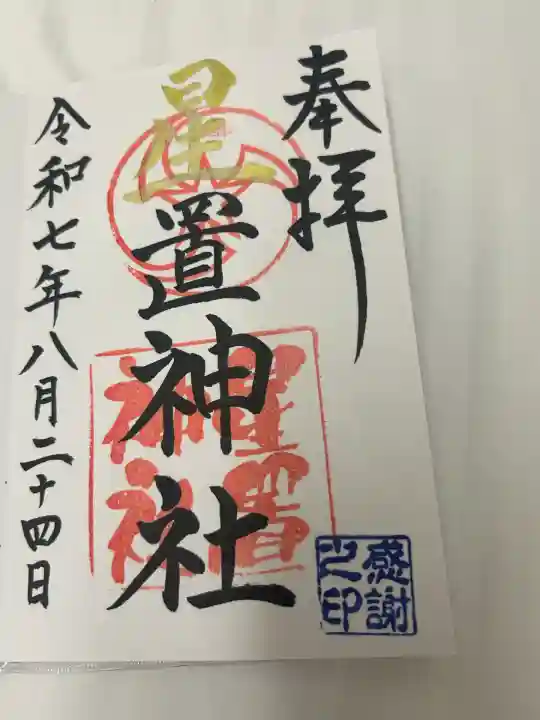 奉拝
星置神社
星置
神社
令和七年八月二十四日
感謝
之印